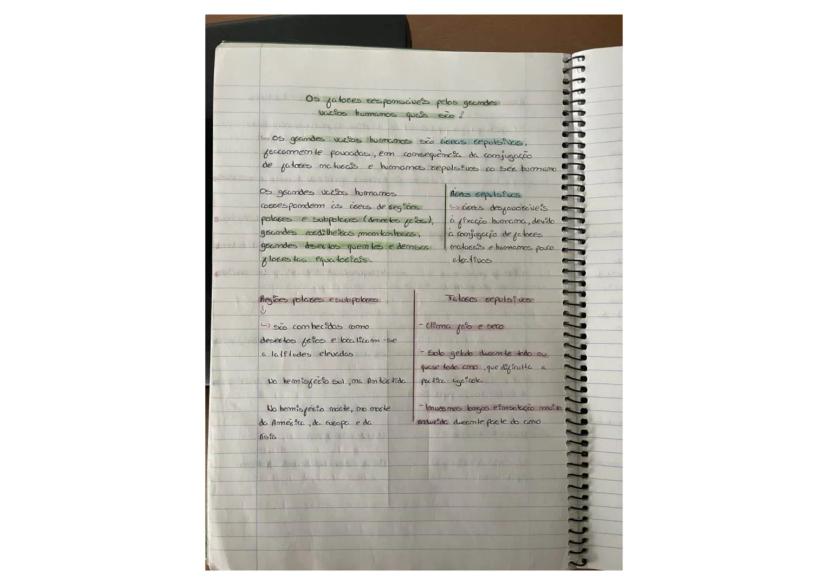 Os fatores responsáveis pelos grandes
vazios humanos quais são?
↳ Os grandes vazios humanos são áreas repulsivas,
fracamente povoadas, em consequência da conjugação
de fatores naturais e humanos repulsivos ao ser humano
Os grandes vazios humanos
correspondem às áreas de regiões
polares e subpolares (desertos frios),
grandes cordilheiras montanhosas,
grandes desertos quentes e densas
florestas equatoriais.
Áreas repulsivas
↳ áreas desfavoráveis
à fixação humana, devido
à conjugação de fatores
naturais e humanos pouco
atrativos
Regiões polares e subpolares
↓
↳ são conhecidas como
desertos frios e localizam-se
a latitudes elevadas
No hemisfério sul, na Antártida
No hemisfério norte, no norte
da América, da Europa e da
Ásia
Fatores repulsivos
- Clima frio e seco
- Solo gelado durante todo ou
quase todo ano, que dificulta a
prática agrícola
- Invernos longos e insolação muito
reduzida durante parte do ano